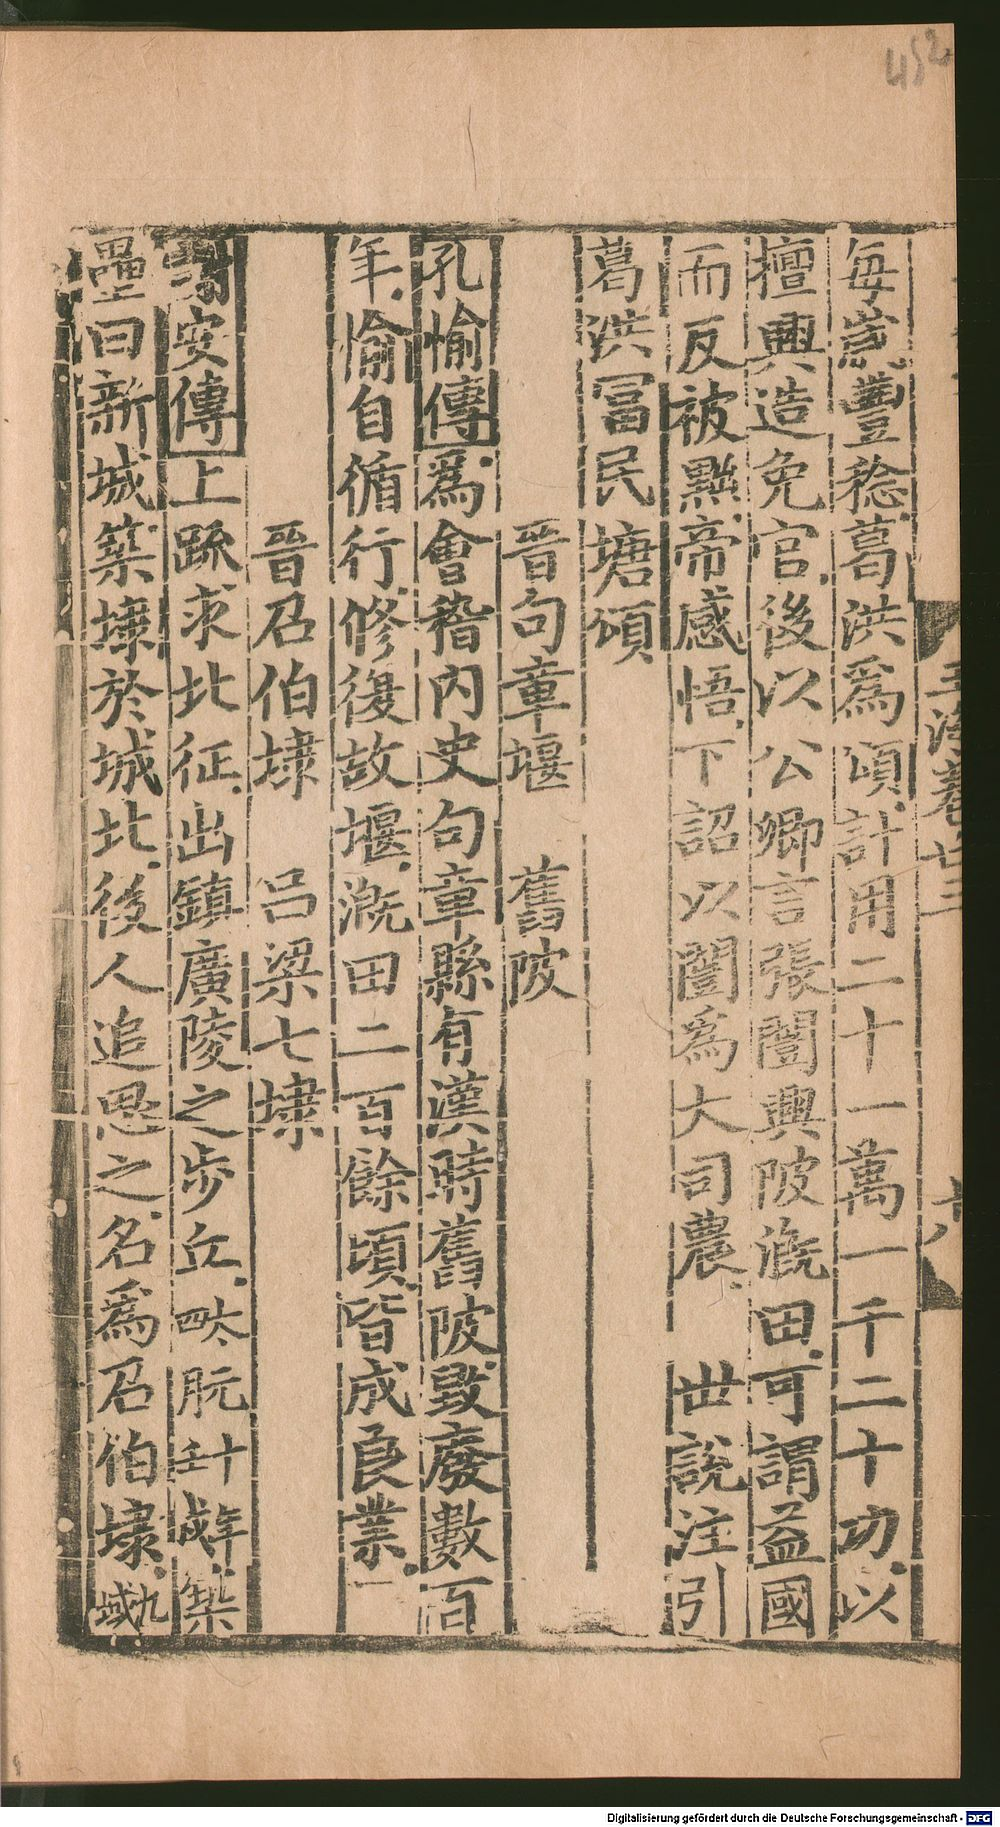 452
每歲豐稔葛洪爲頌計用二十一萬一千二十功以
擅興造免官後以公卿言張闓興陂溉田可謂益國
而反被黜帝感悟下詔以闓爲大司農　世說注引
葛洪冨民塘頌
晉句章堰　舊陂
孔愉傳爲會稽内史句章縣有漢時舊陂毀廢數百
年愉自循行修復故堰溉田二百餘頃皆成良業
晉召伯埭　呂梁七埭
謝安傳上䟽求北征出鎮廣陵之步丘築
壘曰新城築埭於城北後人追思之名爲召伯埭
玉海卷廿三
十八
Digitalisierung gefördert durch die Deutsche Forschungsgemeinschaft - DFG